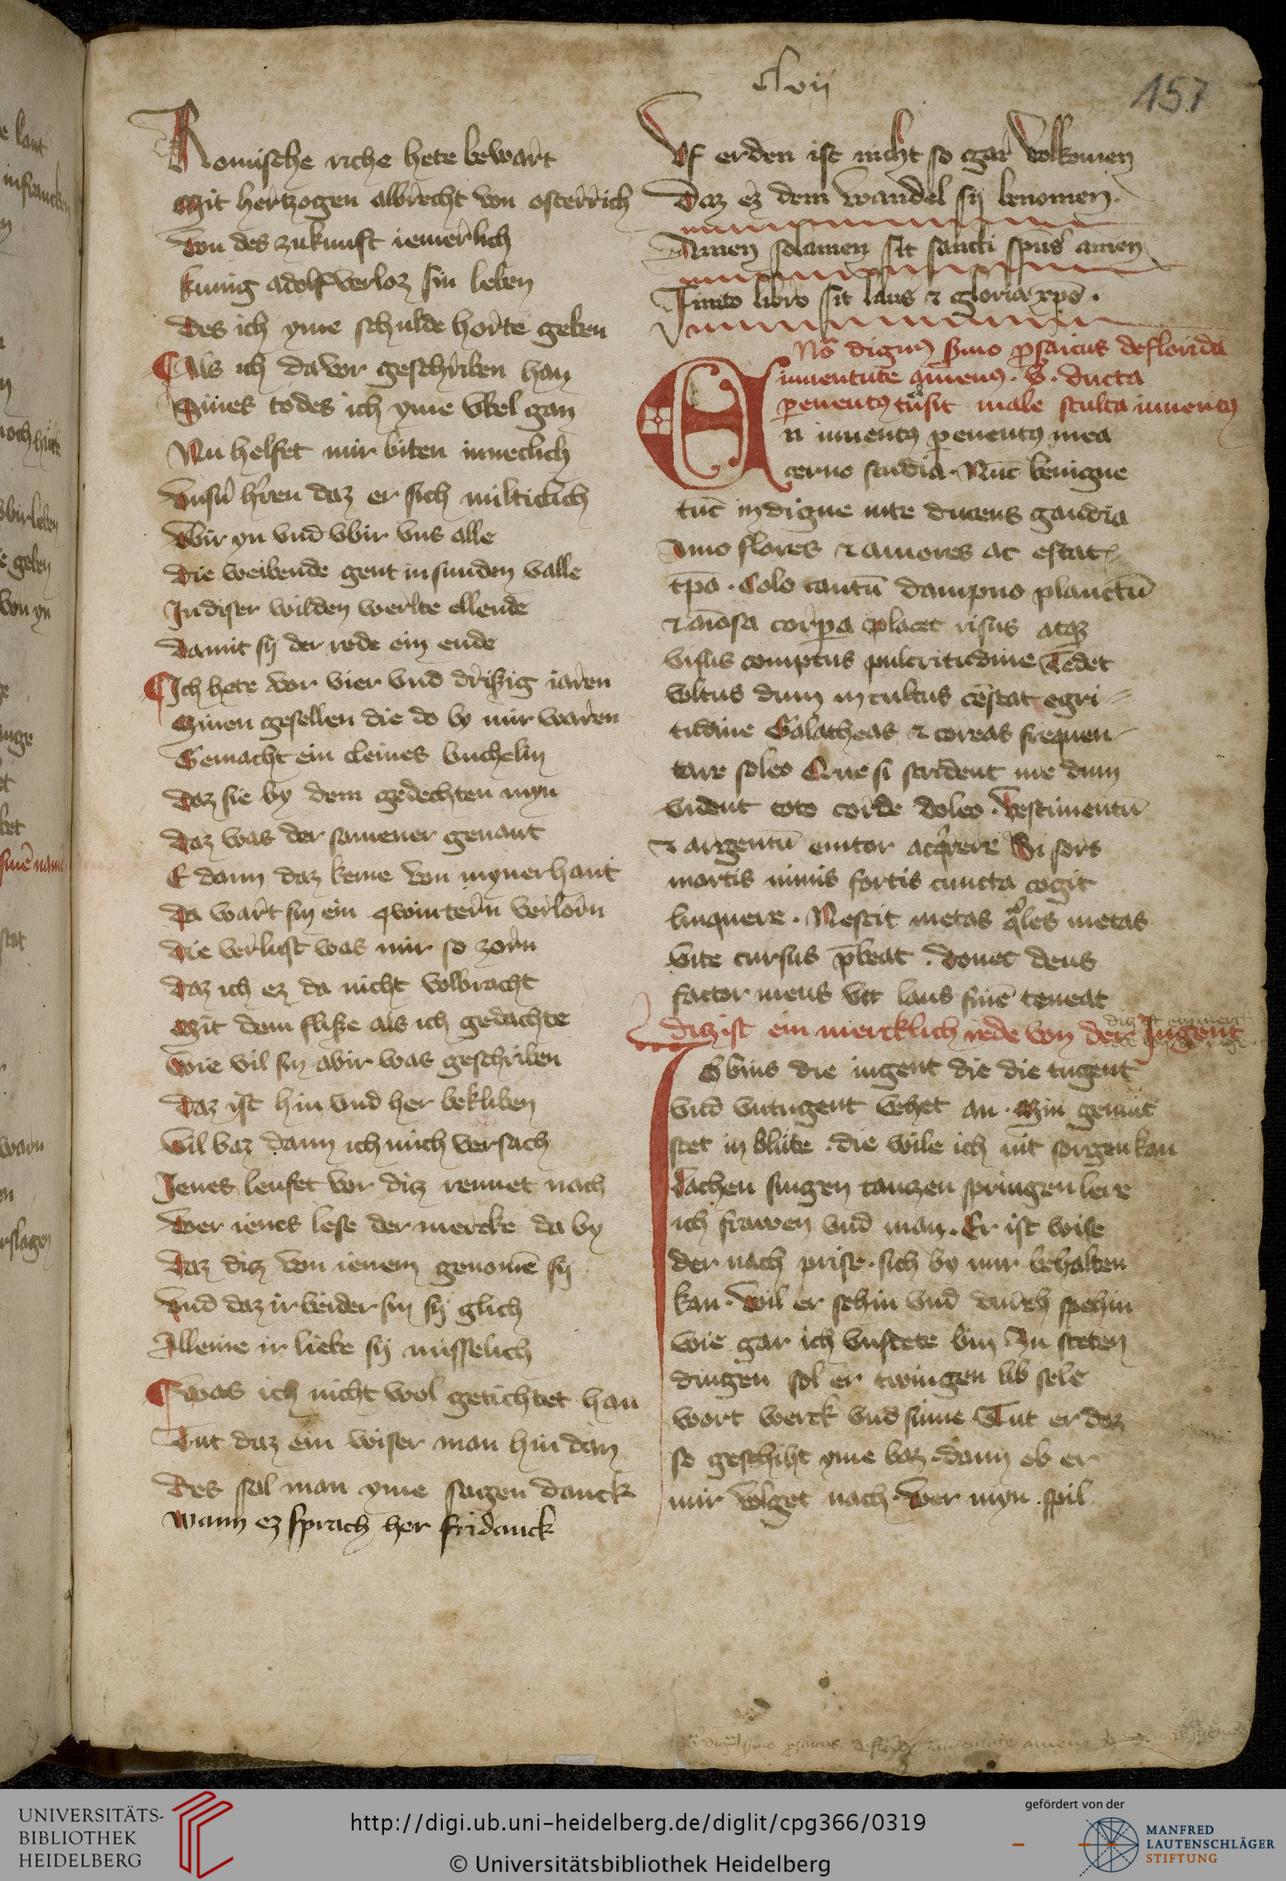 clvij
157
Romische riche hete bewart
Mit hertzogen albrecht von osterrich
Von des zukunft iemerlich
kunig adolf verloz sin leben
Des ich yme schulde horte geben
Als ich da vor geschriben han
Sines todes ich yme vbel gan
Nu helfet mir biten inneclich
Vnsern hren daz er sich milticlich
Vbir yn vnd vbir vns alle
Die weibende gent in sunden valle
In diser wilden werlte ellende
Damit sy der rede ein ende
Ich hete vor vier vnd drißig iaren
Minen gesellen die do by mir waren
Gemacht ein cleines buchelin
Daz sie by dem gedechten myn
Daz was der samener genant
E dann daz keme von myner hant
Da wart sin ein qwintern verlorn
Die verlust was mir so zorn
Daz ich ez da nicht volbracht
Mit dem fliße als ich gedachte
Wie vil sin abir was geschriben
Daz ist hin vnd her bekliben
Vil baz dann ich mich versach
Jenes leufet vor ditz rennet nach
Wer ienes lese der mercke da by
Daz ditz von ienem genomē sy
Vnd daz ir beider sin sy glich
Alleine ir liebe sy misselich
Was ich nicht wol getichtet han
Tut daz ein wiser man hin dan
Des sal man yme sagen danck
Wann ez sprach her fridanck
Vf erden ist nicht so gar volkomen
Daz ez dem wandel sy benomen
Amen solamen sit sancti spūs amen
Finito libro sit laus et gloria xpō
Nō dignū sermo prosaicus deflorida
iuuentute
ducta
male sculta iuuentus
n iuuentus peruentus mea
cerno studia Nūc benigne
tūc indigne uite ducens gaudia
Amo flores et amores ac estat
tpa Colo cantū dampno planctū
placet risus atqz
visus comptus pulcritudine Tedet
voltus dum in cultus cōstat egri
tudine Galatheas et coreas frequen
tare soleo Que si strident me dum
vident toto corde doleo Vestimentū
et argentū enitor acqrere Si sors
mortis nimis fortis cuncta cogit
linquere Nescit metas qles metas
vite cursus pbeat donet deus
factor meus vt laus finē teneat
Ditz ist ein mercklich rede von der Jugent
die iugent die die tugent
vnd vntugent vehet an Min gemut
stet in blute die wile ich nit sorgen kan
Lachen singen tanczen springen lere
ich frawen vnd man Er ist wise
der nach prise sich by mir behalten
kan wil er sehin vnd durch spehin
wie gar ich vnstete bin Zu steten
dingen sol er twingen lib sele
wort werck vnd sinne Tut er daz
so geschiht yme baz dann ob er
mir volget nach Wer myn spil
UNIVERSITÄTS-
BIBLIOTHEK
HEIDELBERG
http://digi.ub.uni-heidelberg.de/diglit/cpg366/0319
© Universitätsbibliothek Heidelberg
gefördert von der
MANFRED
LAUTENSCHLÄGER
STIFTUNG